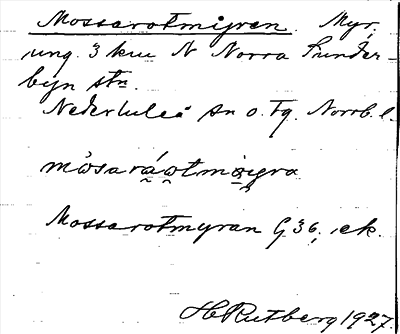 Mossarotmyran. Myr,
ung. 3 km N Norra Sunder-
byn stn.
Nederluleå sn o. tg. Norrb. l.
Mossarotmyran G 36, ek.
H Rutberg 1927.